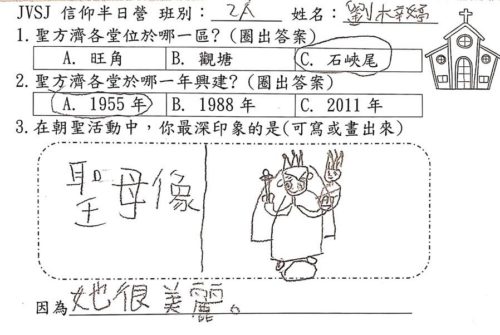 JVSJ 信仰半日營 班別：2A 姓名：劉梓嫣
1.聖方濟各堂位於哪一區？(圈出答案)
A. 旺角 B. 觀塘 C. 石峽尾
2.聖方濟各堂於哪一年興建？(圈出答案)
A. 1955 年 B. 1988 年 C. 2011 年
3.在朝聖活動中，你最深印象的是(可寫或畫出來)
聖母像
因為她很美麗。